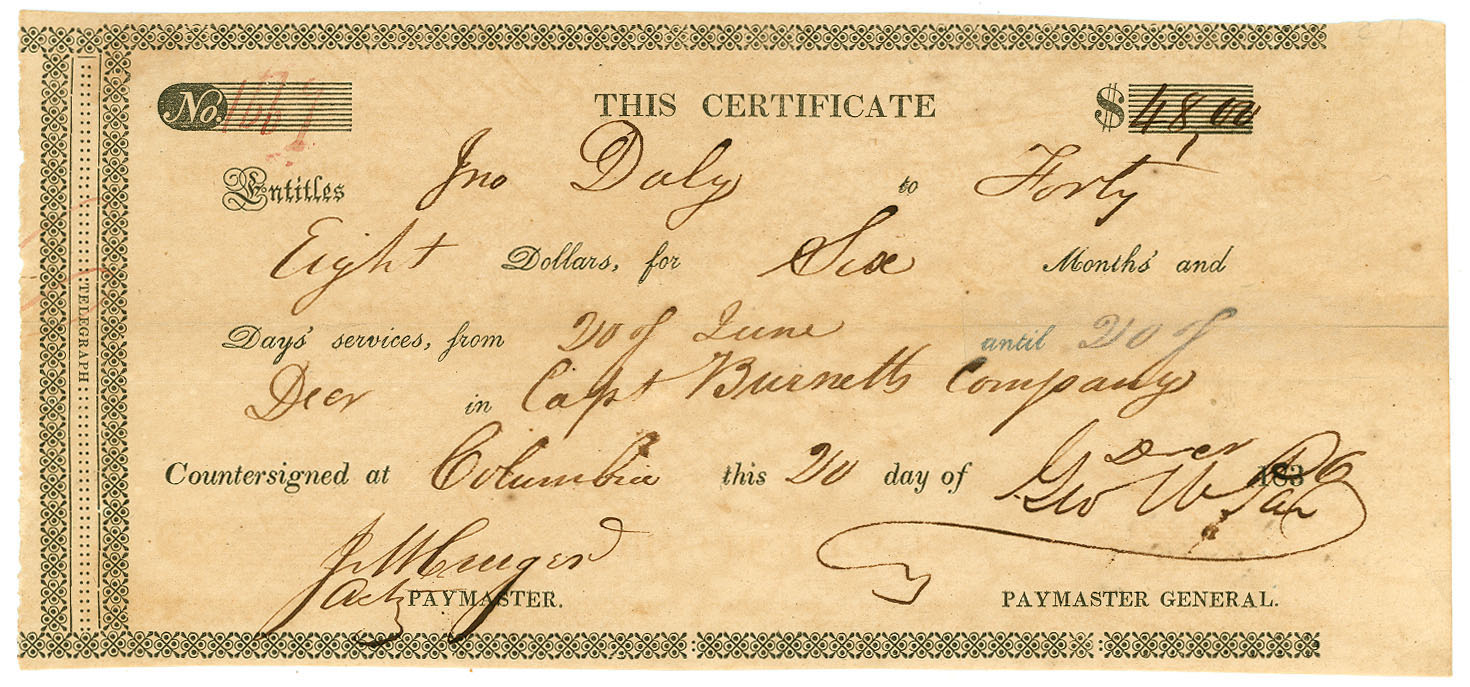 No. THIS CERTIFICATE $48,00
Entitles Jno Daly to Forty
Eight Dollars, for Six Months' and
Days' services, from 20 of June until 20 of
Decr in Capt Burnetts Company
Countersigned at Columbia this 20 day of Decr 1836
Geo W
PAYMASTER. PAYMASTER GENERAL.
TELEGRAPH